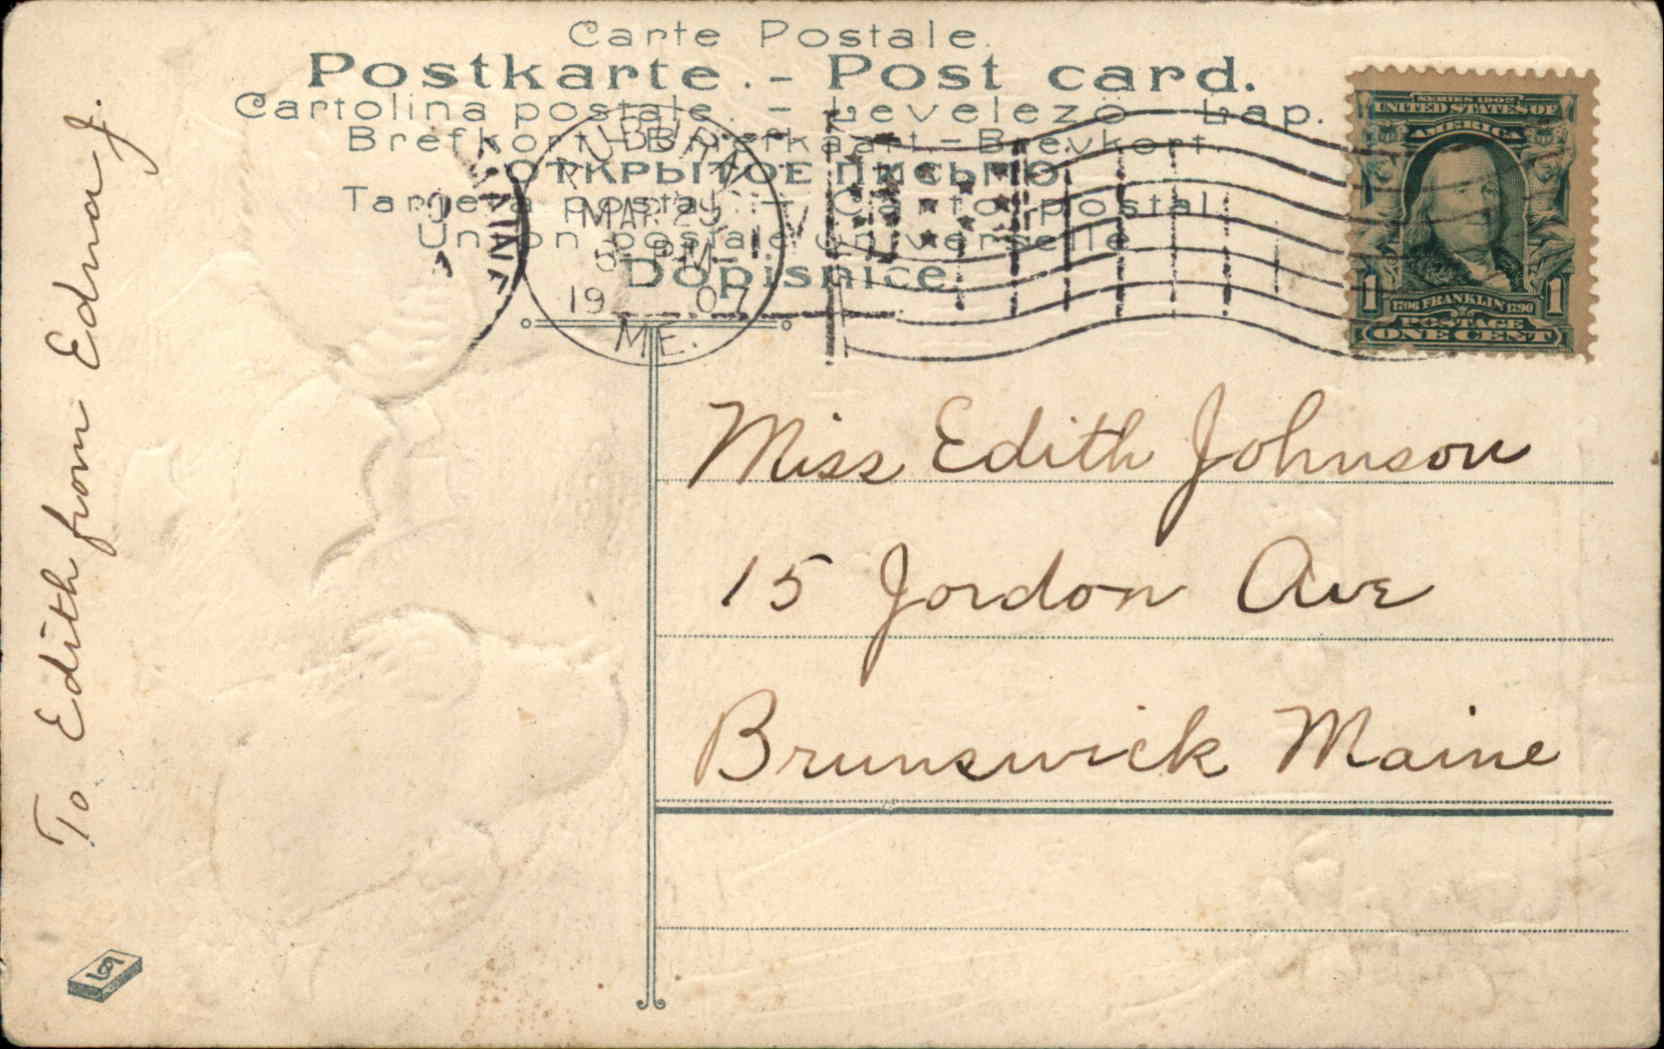 Carte Postale.
Postkarte. - Post card.
Cartolina postale. - Levelező - Lap.
Brefkort - Briefkaart - Brevkort.
ОТКРЫТОЕ ПИСЬМО
Tarjeta postal. - Cartão postal
Union postale universelle
Dopisnice.
MAR 25
5 PM
19 07
ME.
SERIES 1902
UNITED STATES OF
AMERICA
1 1706 FRANKLIN 1790 1
POSTAGE
ONE CENT
To Edith from Edna J.
Miss Edith Johnson
15 Jordon Ave
Brunswick Maine